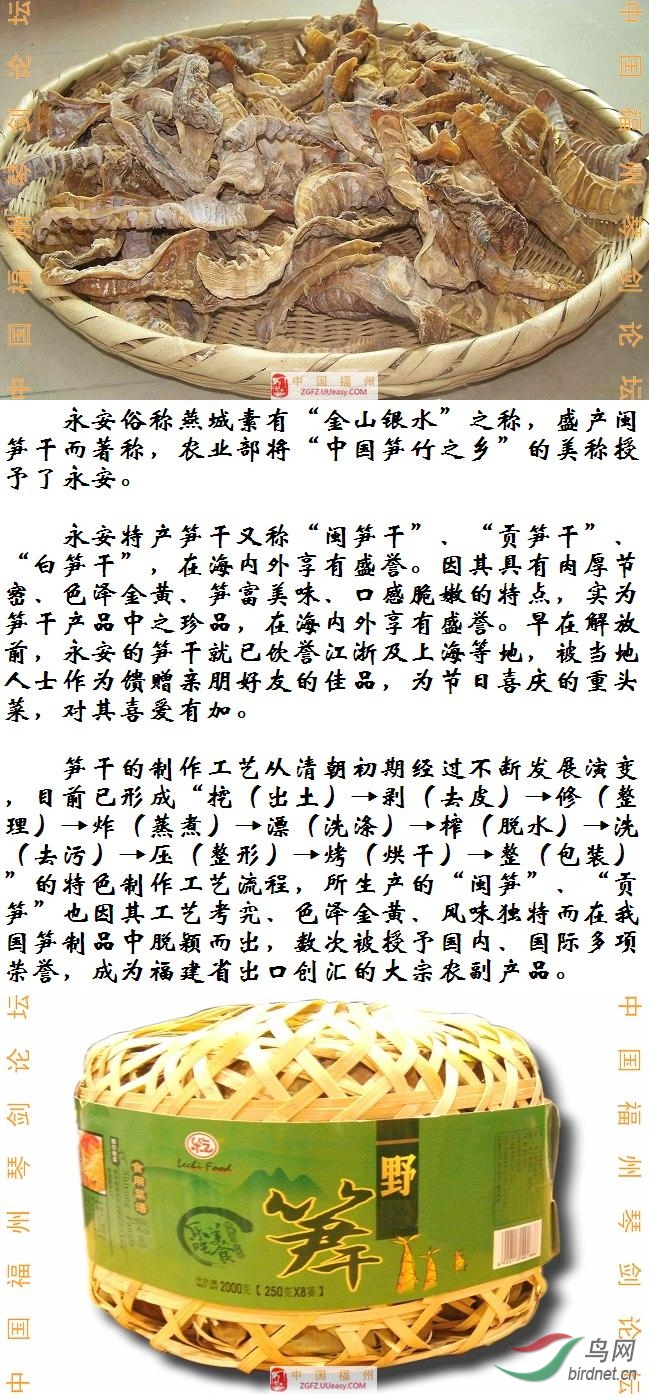 中国福州琴剑论坛
中国福州琴剑论坛
中国福州
ZGFZ.UUeasy.COM
永安俗称燕城素有“金山银水”之称，盛产闽
笋干而著称，农业部将“中国笋竹之乡”的美称授
予了永安。
永安特产笋干又称“闽笋干”、“贡笋干”、
“白笋干”，在海内外享有盛誉。因其具有肉厚节
密、色泽金黄、笋富美味、口感脆嫩的特点，实为
笋干产品中之珍品，在海内外享有盛誉。早在解放
前，永安的笋干就已饮誉江浙及上海等地，被当地
人士作为馈赠亲朋好友的佳品，为节日喜庆的重头
菜，对其喜爱有加。
笋干的制作工艺从清朝初期经过不断发展演变
，目前已形成“挖（出土）→剥（去皮）→修（整
理）→炸（蒸煮）→漂（洗涤）→榨（脱水）→洗
（去污）→压（整形）→烤（烘干）→整（包装）
”的特色制作工艺流程，所生产的“闽笋”、“贡
笋”也因其工艺考究、色泽金黄、风味独特而在我
国笋制品中脱颖而出，数次被授予国内、国际多项
荣誉，成为福建省出口创汇的大宗农副产品。
中国福州琴剑论坛
中国福州琴剑论坛
Lechi Food
食用菜谱
野
笋干
乐吃美食
2000克【250克X8蒌】
鸟网
birdnet.cn
中国福州
ZGFZ.UUeasy.COM